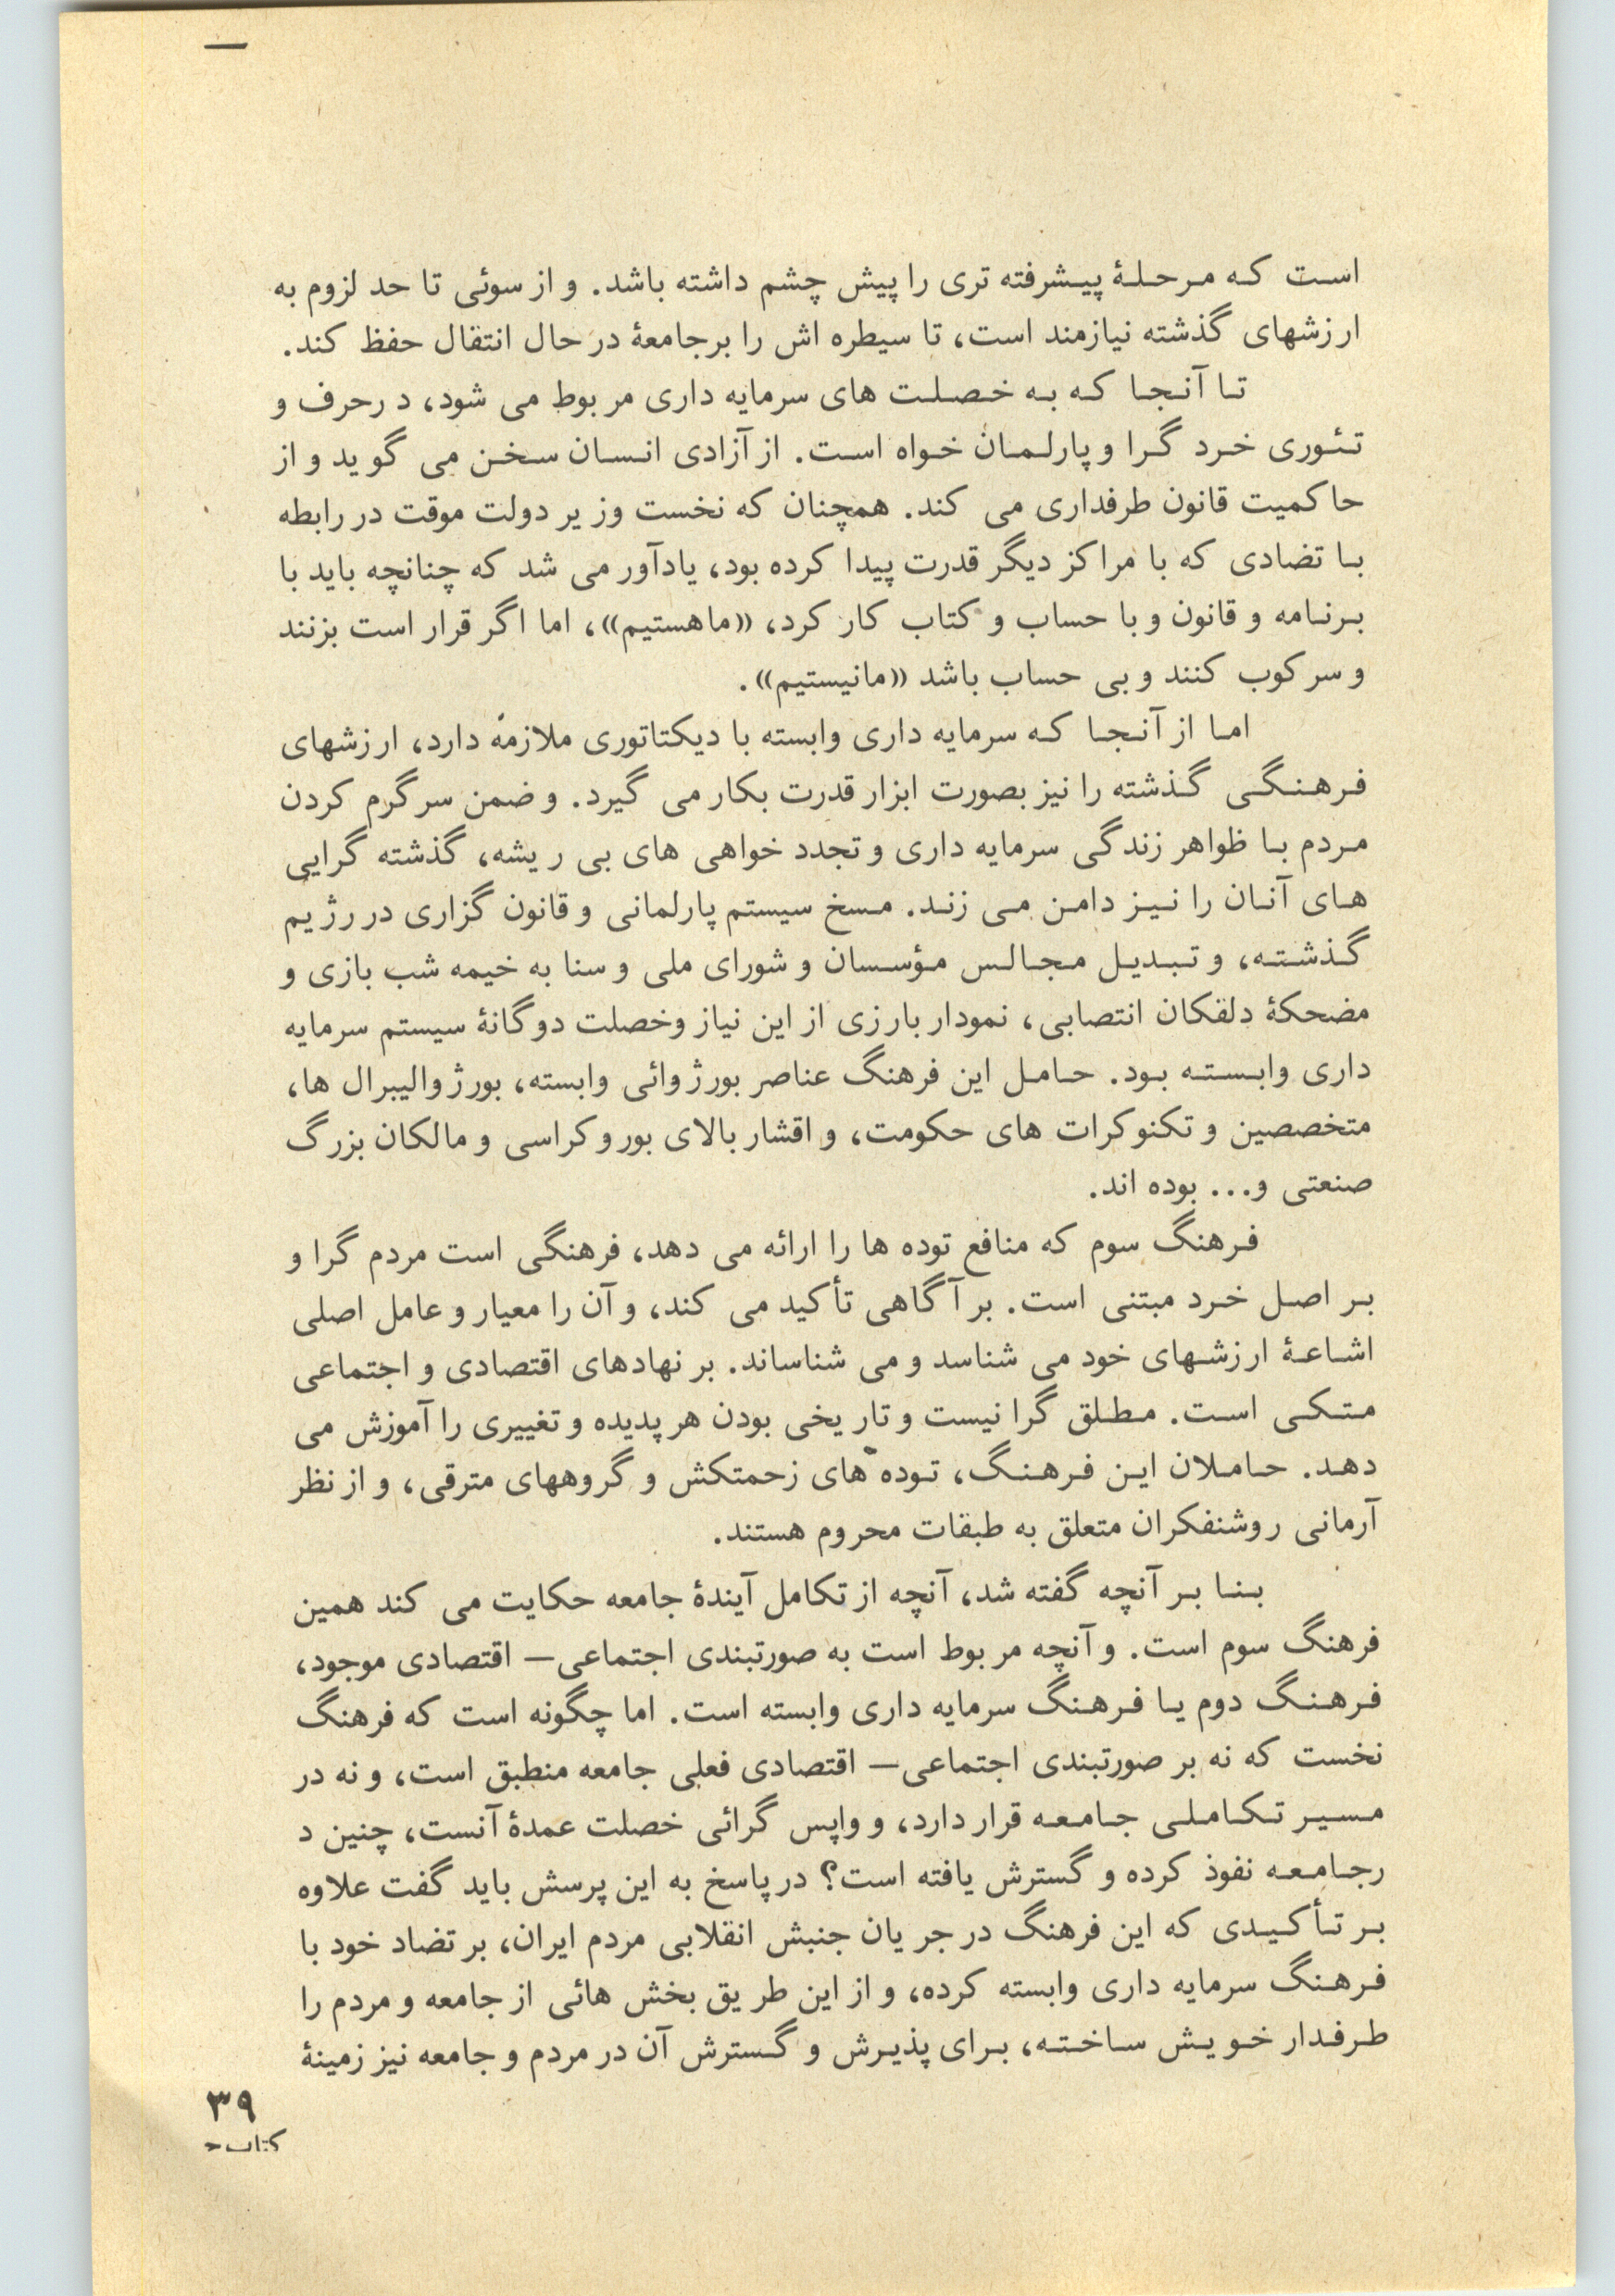 است که مرحلهٔ پیشرفته تری را پیش چشم داشته باشد. و از سوئی تا حد لزوم به
ارزشهای گذشته نیازمند است، تا سیطره اش را برجامعهٔ در حال انتقال حفظ کند.
تا آنجا که به خصلت های سرمایه داری مربوط می شود، د رحرف و
تئوری خرد گرا و پارلمان خواه است. از آزادی انسان سخن می گوید و از
حاکمیت قانون طرفداری می کند. همچنان که نخست وزیر دولت موقت در رابطه
با تضادی که با مراکز دیگر قدرت پیدا کرده بود، یادآور می شد که چنانچه باید با
برنامه و قانون و با حساب و کتاب کار کرد، «ماهستیم»، اما اگر قرار است بزنند
و سرکوب کنند و بی حساب باشد «مانیستیم».
اما از آنجا که سرمایه داری وابسته با دیکتاتوری ملازمه دارد، ارزشهای
فرهنگی گذشته را نیز بصورت ابزار قدرت بکار می گیرد. و ضمن سرگرم کردن
مردم با ظواهر زندگی سرمایه داری و تجدد خواهی های بی ریشه، گذشته گرایی
های آنان را نیز دامن می زند. مسخ سیستم پارلمانی و قانون گزاری در رژیم
گذشته، و تبدیل مجالس مؤسسان و شورای ملی و سنا به خیمه شب بازی و
مضحکهٔ دلقکان انتصابی، نمودار بارزی از این نیاز وخصلت دوگانهٔ سیستم سرمایه
داری وابسته بود. حامل این فرهنگ عناصر بورژوائی وابسته، بورژوالیبرال ها،
متخصصین و تکنوکرات های حکومت، و اقشار بالای بوروکراسی و مالکان بزرگ
صنعتی و... بوده اند.
فرهنگ سوم که منافع توده ها را ارائه می دهد، فرهنگی است مردم گرا و
بر اصل خرد مبتنی است. بر آگاهی تأکید می کند، و آن را معیار و عامل اصلی
اشاعهٔ ارزشهای خود می شناسد و می شناساند. بر نهادهای اقتصادی و اجتماعی
متکی است. مطلق گرا نیست و تاریخی بودن هر پدیده و تغییری را آموزش می
دهد. حاملان این فرهنگ، توده های زحمتکش و گروههای مترقی، و از نظر
آرمانی روشنفکران متعلق به طبقات محروم هستند.
بنا بر آنچه گفته شد، آنچه از تکامل آیندهٔ جامعه حکایت می کند همین
فرهنگ سوم است. و آنچه مربوط است به صورتبندی اجتماعی— اقتصادی موجود،
فرهنگ دوم یا فرهنگ سرمایه داری وابسته است. اما چگونه است که فرهنگ
نخست که نه بر صورتبندی اجتماعی— اقتصادی فعلی جامعه منطبق است، و نه در
مسیر تکاملی جامعه قرار دارد، و واپس گرائی خصلت عمدهٔ آنست، چنین د
رجامعه نفوذ کرده و گسترش یافته است؟ در پاسخ به این پرسش باید گفت علاوه
بر تأکیدی که این فرهنگ در جریان جنبش انقلابی مردم ایران، بر تضاد خود با
فرهنگ سرمایه داری وابسته کرده، و از این طریق بخش هائی از جامعه و مردم را
طرفدار خویش ساخته، برای پذیرش و گسترش آن در مردم و جامعه نیز زمینهٔ
۳۹